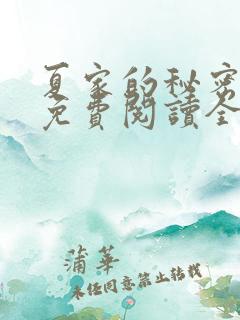 夏家的秘密
免費閱讀全
蒲華
未任同意禁止转载